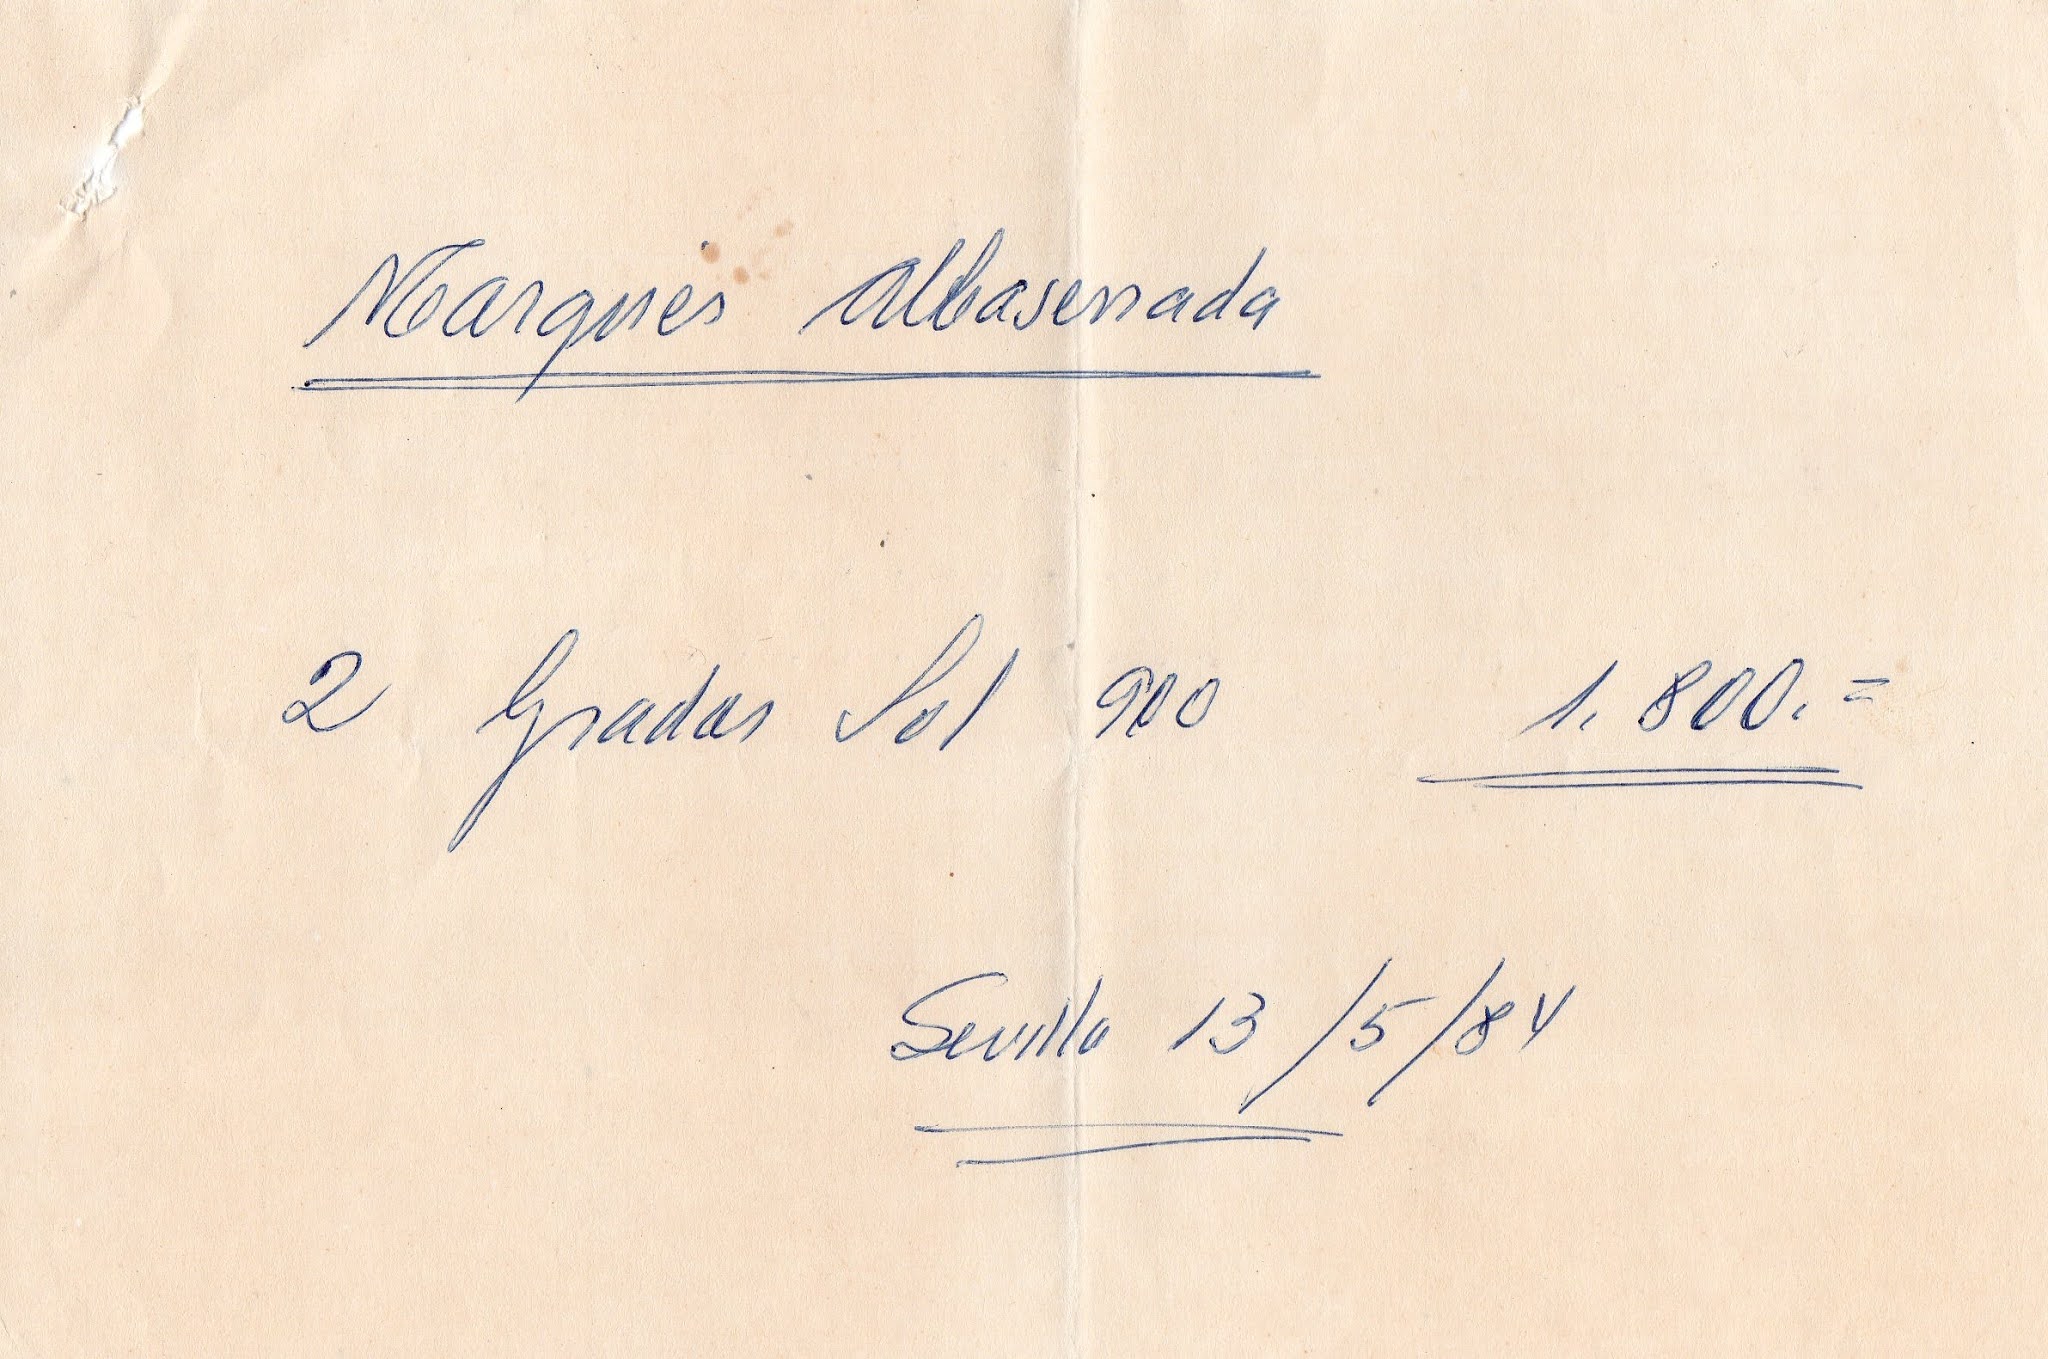 Marqués Albaserrada
2 Gradas Sol 900 1.800.=
Sevilla 13/5/84